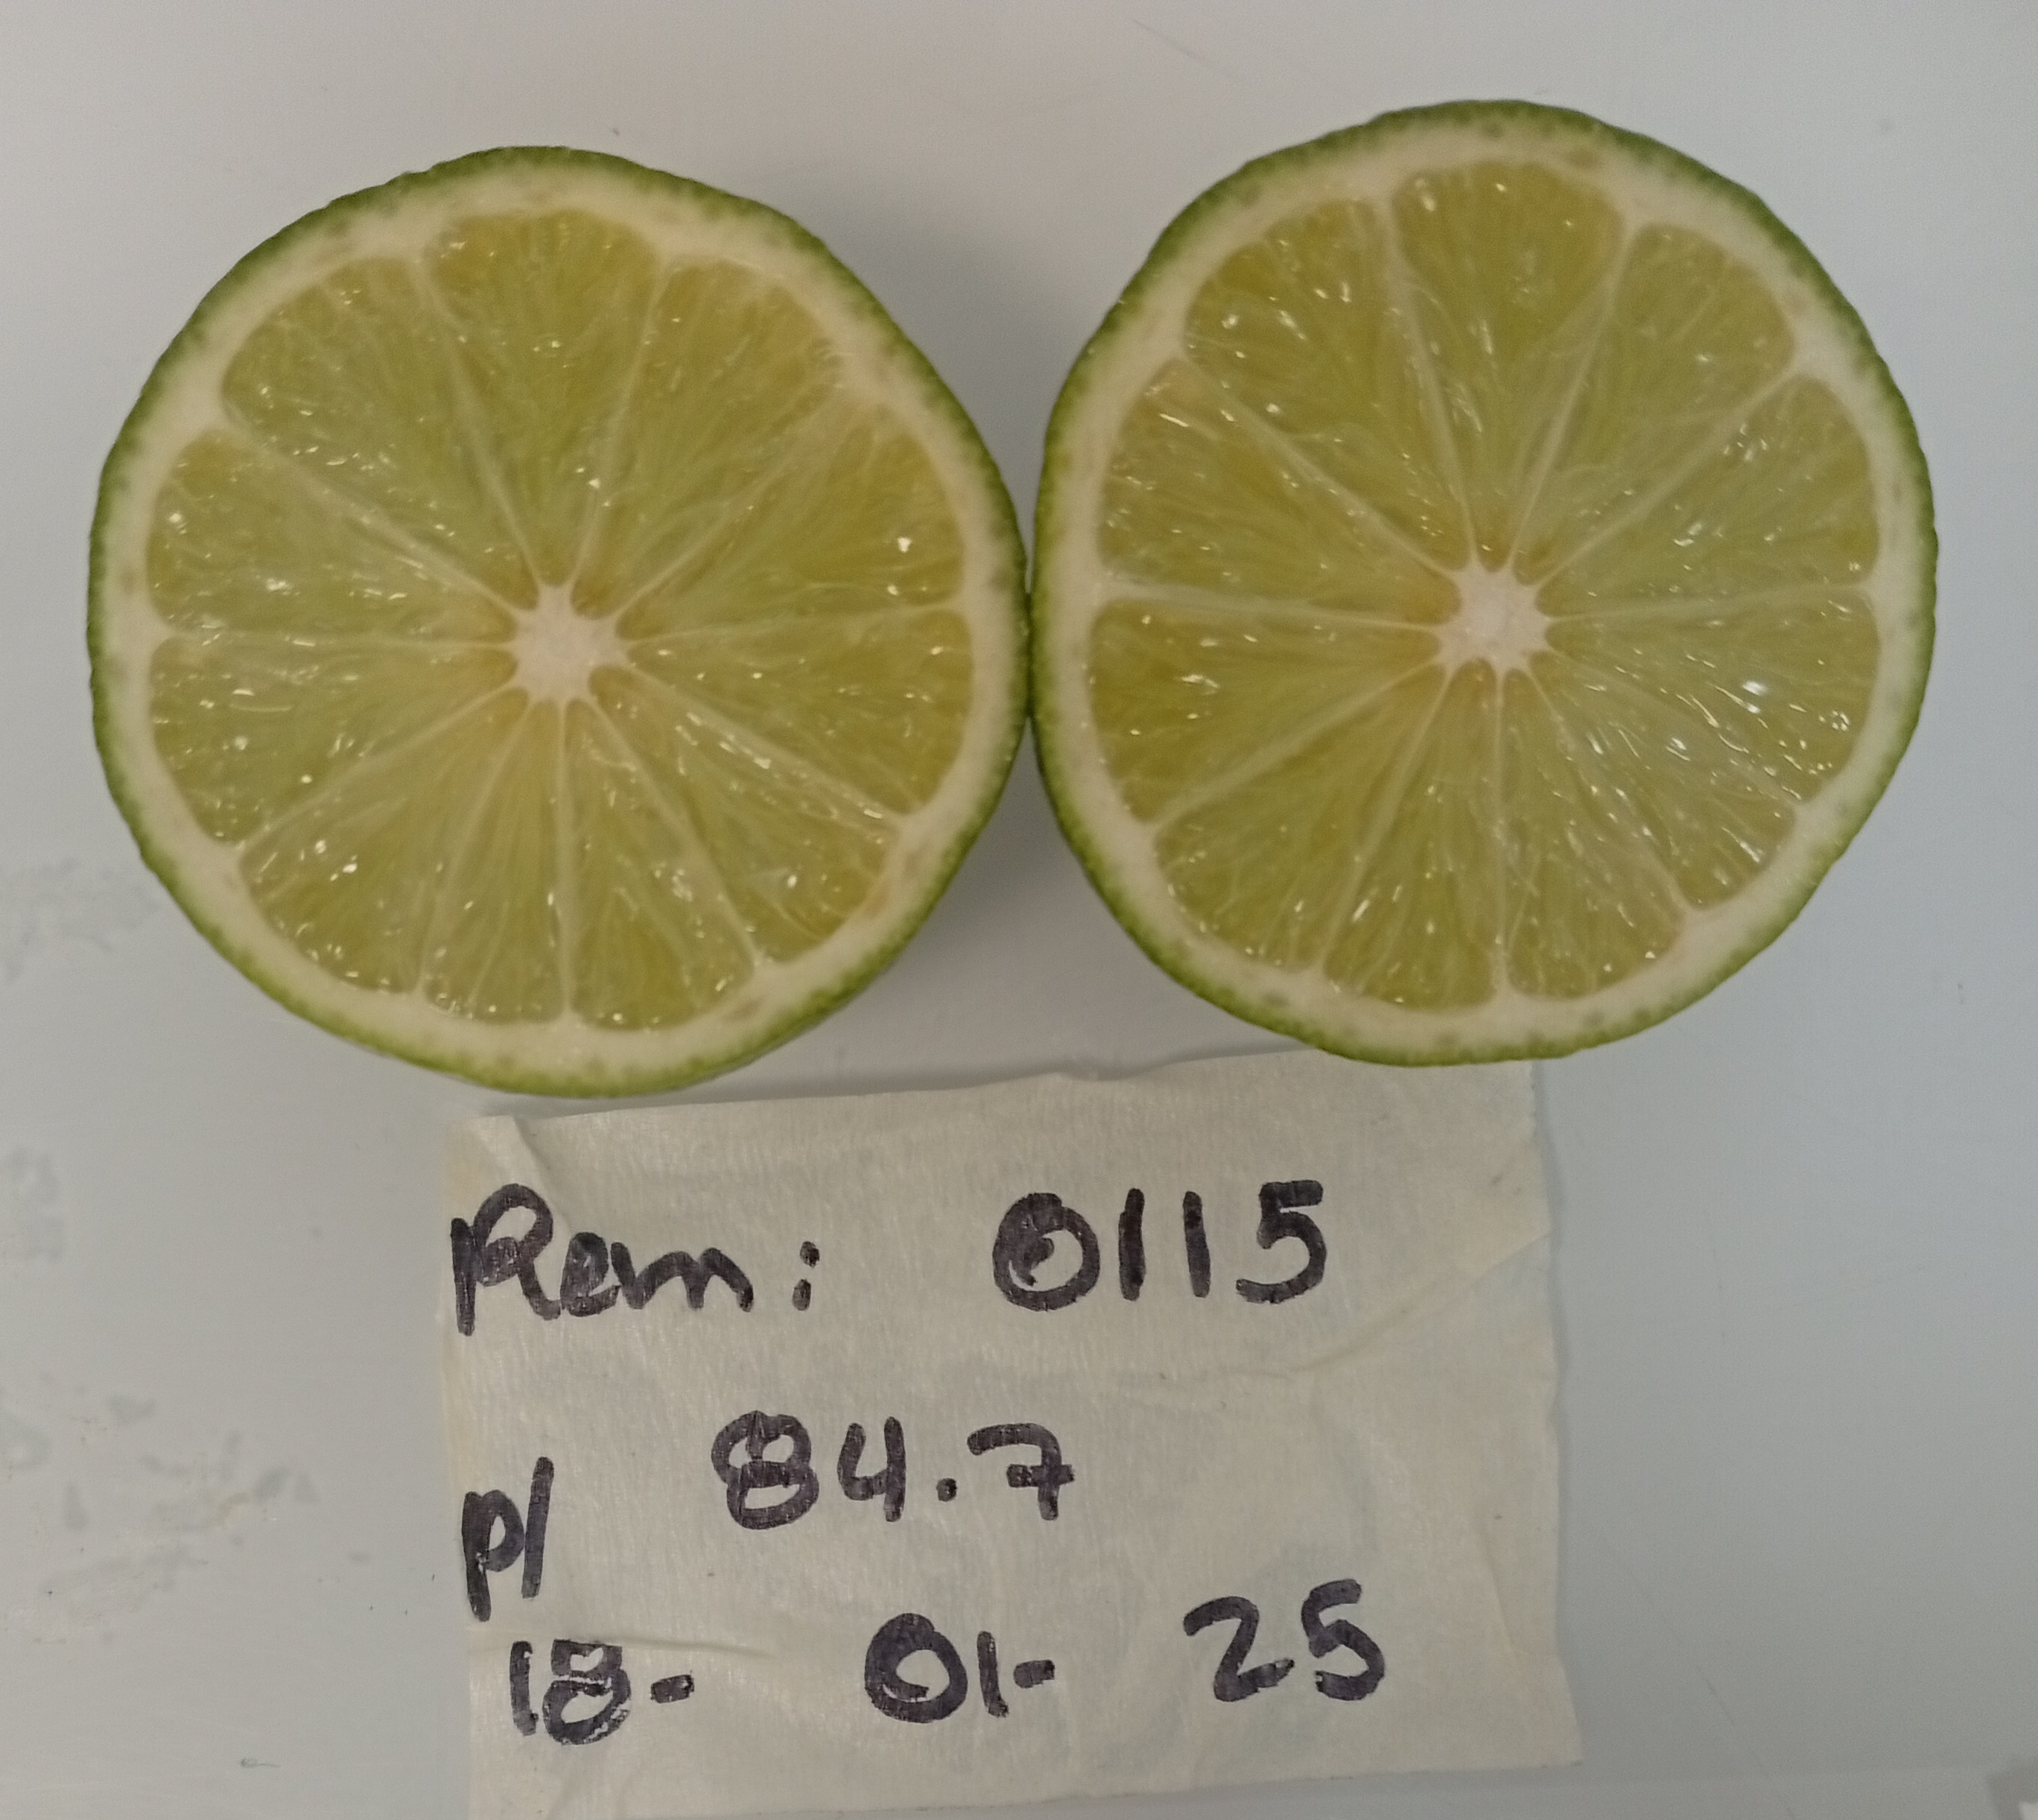 Rem: 0115
p/ 84.7
18- 01- 25